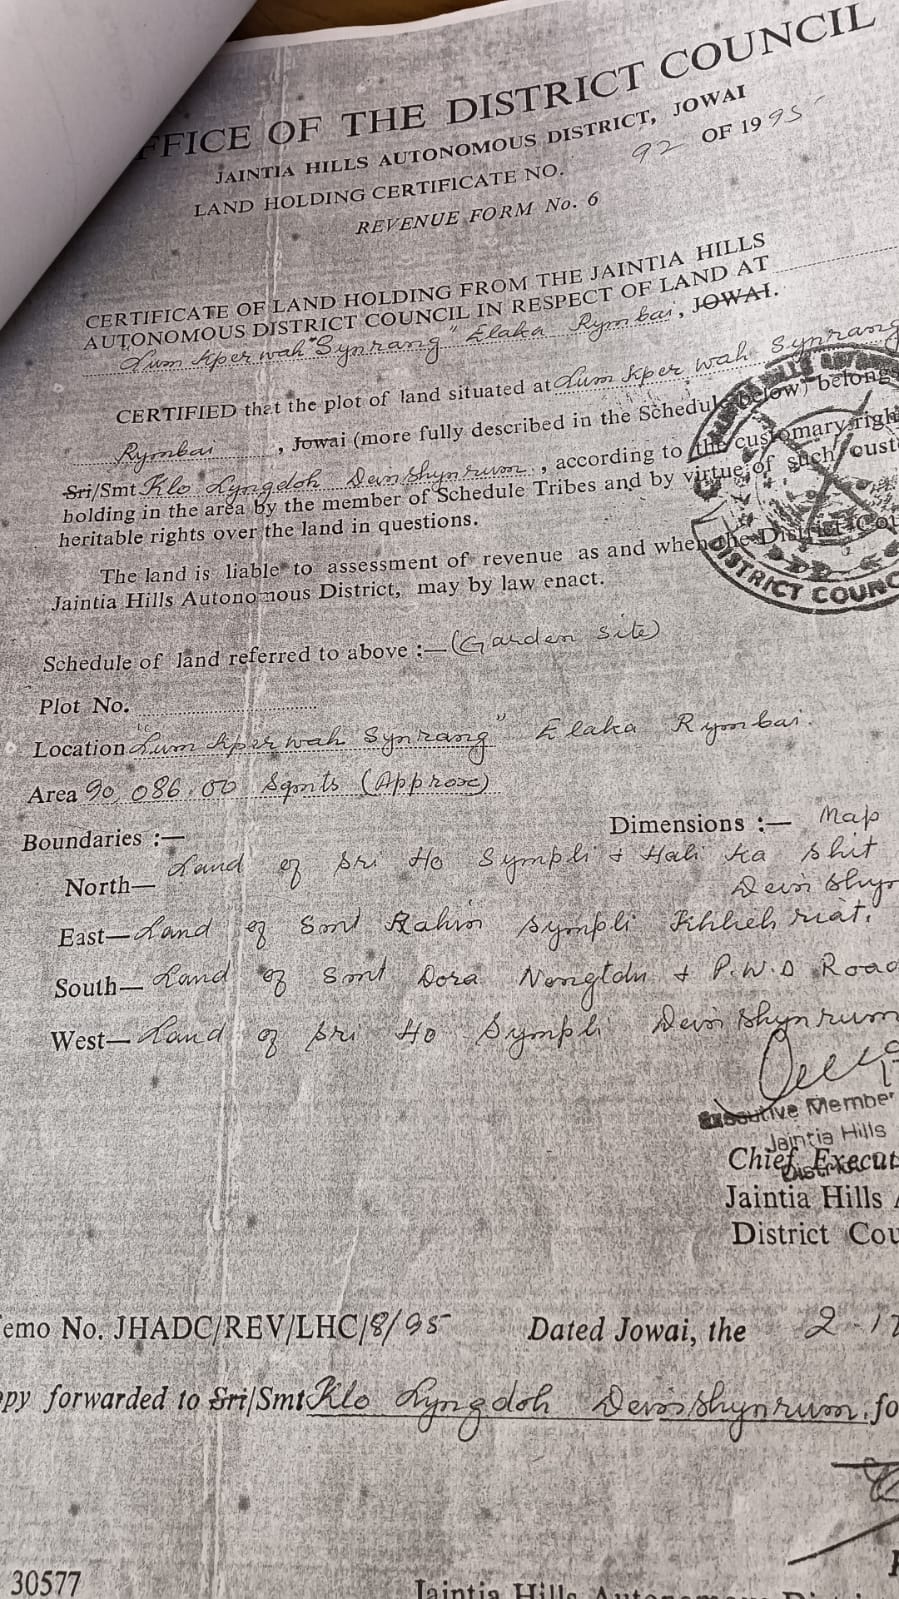 OFFICE OF THE DISTRICT COUNCIL
JAINTIA HILLS AUTONOMOUS DISTRICT, JOWAI
LAND HOLDING CERTIFICATE NO. 92 OF 1995
REVENUE FORM No. 6
CERTIFICATE OF LAND HOLDING FROM THE JAINTIA HILLS
AUTONOMOUS DISTRICT COUNCIL IN RESPECT OF LAND AT
Lum Kper wah "Synrang" Elaka Rymbai, JOWAI.
CERTIFIED that the plot of land situated at Lum Kper wah Synrang
Rymbai, Jowai (more fully described in the Schedule below) belongs
Sri/Smt Klo Lyngdoh Demshynrum, according to the customary right
holding in the area by the member of Schedule Tribes and by virtue of such custo
heritable rights over the land in questions.
The land is liable to assessment of revenue as and when the District Cou
Jaintia Hills Autonomous District, may by law enact.
Schedule of land referred to above :— (Garden site)
Plot No.
Location "Lum Kper wah Synrang" Elaka Rymbai.
Area 90,086.00 Sqmts (Approx)
Boundaries :— Dimensions :— Map
North— Land of Sri Ho Sympli + Hali Ka Shit
Demshyn
East— Land of Smt Rahin Sympli Khliehriat.
South— Land of Smt Dora Nongtdu + P.W.D Road
West— Land of Sri Ho Sympli Demshynrum
Executive Member
Jaintia Hills
District
Chief Execut
Jaintia Hills A
District Cou
emo No. JHADC/REV/LHC/8/95 Dated Jowai, the 2-12
py forwarded to Sri/Smt Klo Lyngdoh Demshynrum. fo
30577
Jaintia Hills Autonomous Distri
DISTRICT COUNC